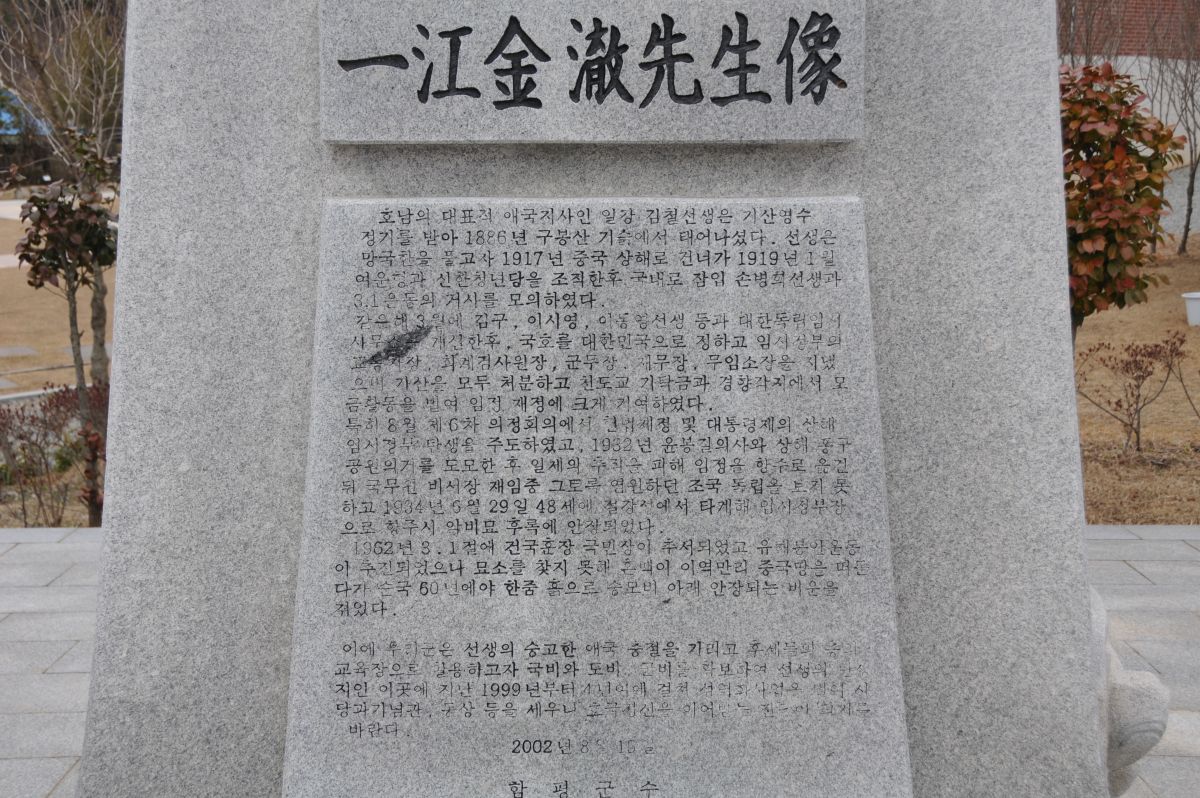 一江金澈先生像
호남의 대표적 애국지사인 일강 김철선생은 기산영수
정기를 받아 1886년 구봉산 기슭에서 태어나셨다. 선생은
망국한을 품고사 1917년 중국 상해로 건너가 1919년 1월
여운형과 신한청년당을 조직한후 국내로 잠입 손병희선생과
3.1운동의 거사를 모의하였다.
같은해 3월에 김구, 이시영, 이동녕선생 등과 대한독립임시
개신한후, 국호를 대한민국으로 정하고 임시정부의
회계검사원장, 군무장. 재무장, 무임소장을 지냈
으며 가산을 모두 처분하고 천도교 기탁금과 경향각지에서 모
금활동을 벌여 임정 재정에 크게 기여하였다.
특히 8월 제6차 의정회의에서 헌법제정 및 대통령제의 상해
임시정부 탄생을 주도하였고, 1932년 윤봉길의사와 상해 홍구
공원의거를 도모한 후 일제의 추적을 피해 임정을 항주로 옮긴
뒤 국무원 비서장 재임중 그토록 염원하던 조국 독립을 보지 못
하고 1934년 6월 29일 48세에 절강성에서 타계해 임시정부장
으로 항주시 악비묘 후록에 안장되었다.
1962년 3.1절에 건국훈장 국민장이 추서되었고 유해봉안운동
이 추진되었으나 묘소를 찾지 못해 혼백이 이역만리 중국땅을 떠돈
다가 순국 60년에야 한줌 흙으로 숭모비 아래 안장되는 비운을
겪었다.
이에 우리군은 선생의 숭고한 애국 충절을 기리고 후세들의
교육장으로 활용하고자 국비와 도비, 군비를 확보하여 선생의
지인 이곳에 지난 1999년부터 4년이에 걸쳐 성역화사업을
당과기념관, 동상 등을 세우니 호국정신을 이어받는
바란다.
2002년 8월 15일
함평군수